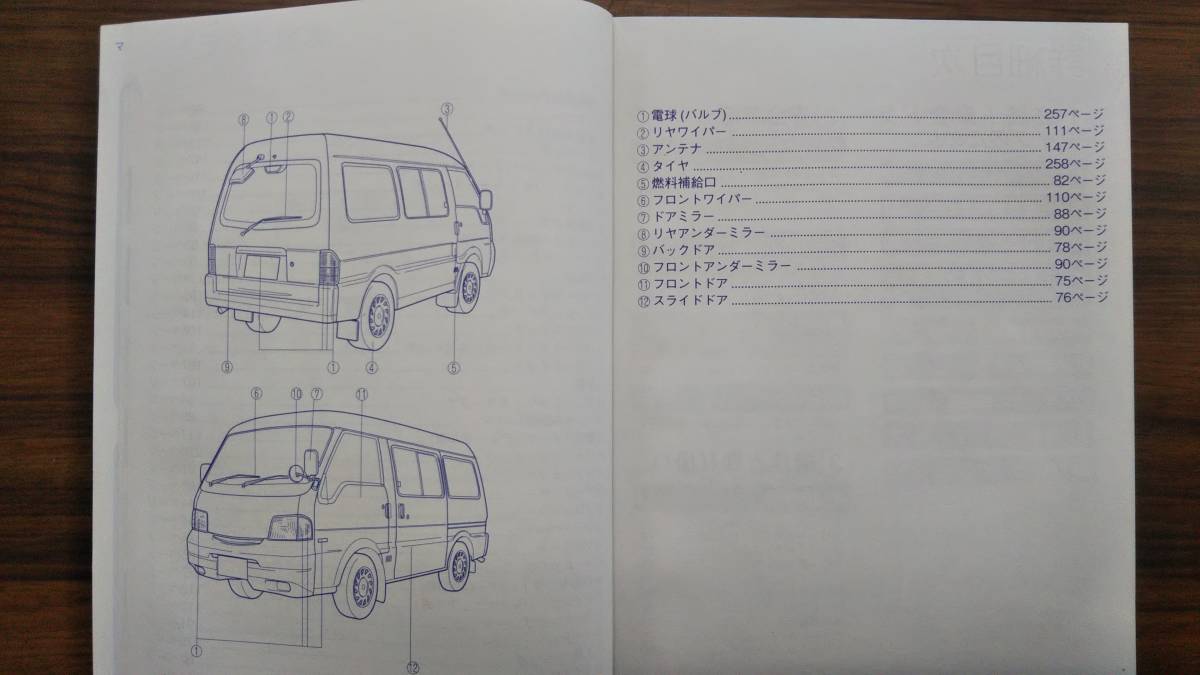 マ
⑧ ① ② ③
⑨ ① ④ ⑤
⑥ ⑩ ⑦ ⑪
① ⑫
①電球(バルブ)................257ページ
②リヤワイパー................111ページ
③アンテナ................147ページ
④タイヤ................258ページ
⑤燃料補給口................82ページ
⑥フロントワイパー................110ページ
⑦ドアミラー................88ページ
⑧リヤアンダーミラー................90ページ
⑨バックドア................78ページ
⑩フロントアンダーミラー................90ページ
⑪フロントドア................75ページ
⑫スライドドア................76ページ